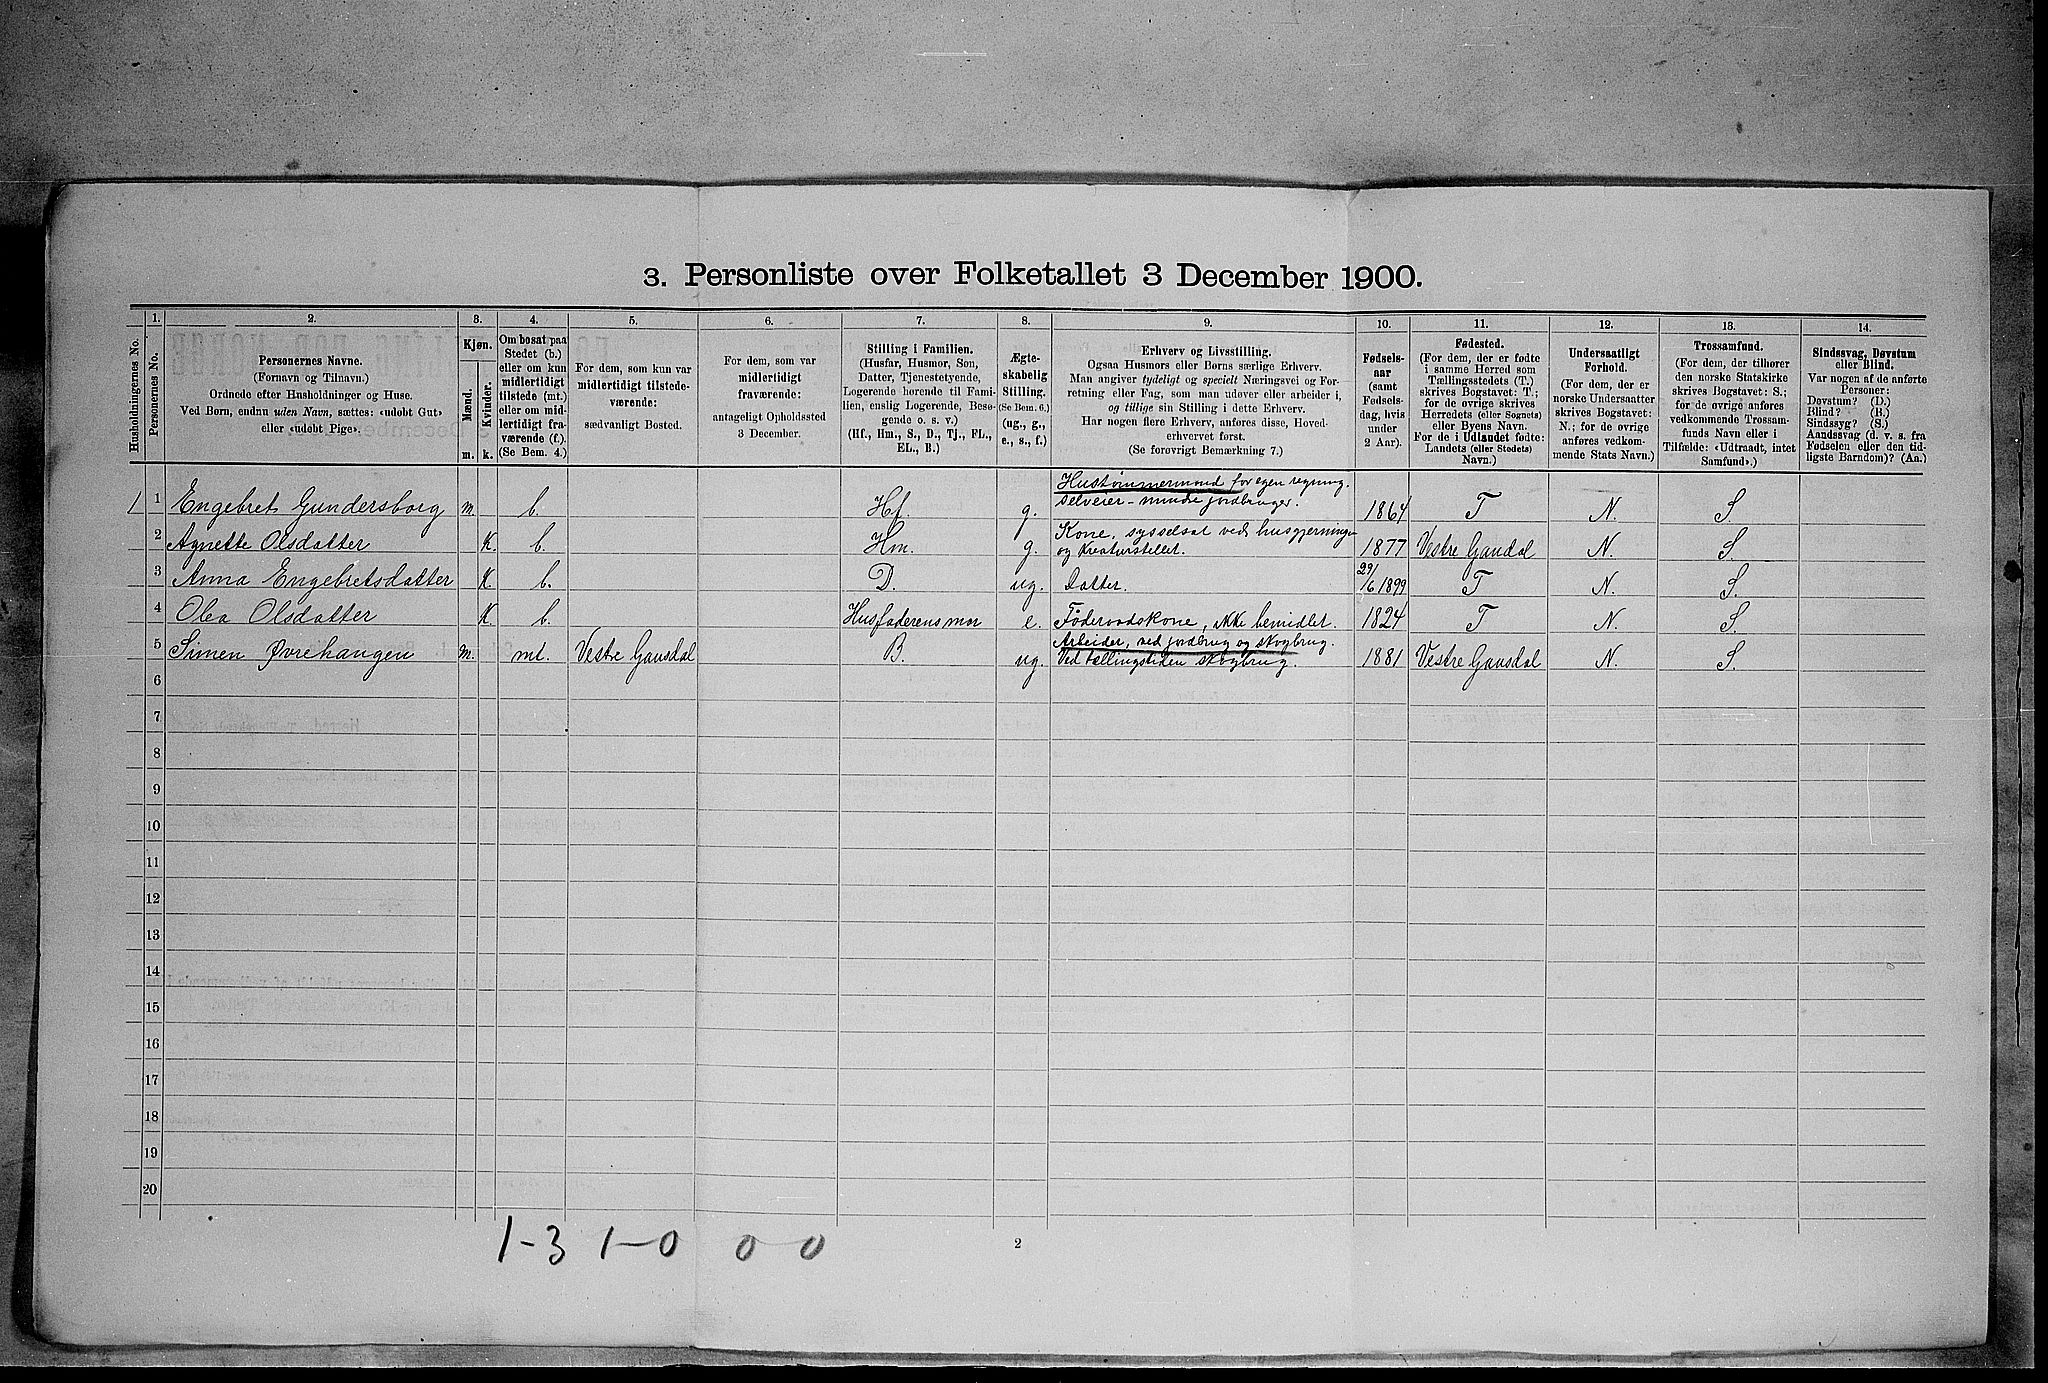 3. Personliste over Folketallet 3 December 1900.
1. 2. 3. 4. 5. 6. 7. 8. 9. 10. 11. 12. 13. 14.
Husholdningernes No.
Personernes No.
Personernes Navne.
(Fornavn og Tilnavn.)
Ordnede efter Husholdninger og Huse.
Ved Børn, endnu uden Navn, sættes: «udøbt Gut»
eller «udøbt Pige».
Kjøn.
Mænd.
Kvinder.
m. k.
Om bosat paa
Stedet (b.)
eller om kun
midlertidigt
tilstede (mt.)
eller om mid-
lertidigt fra-
værende (f.).
(Se Bem. 4.)
For dem, som kun var
midlertidigt tilstede-
værende:
sædvanligt Bosted.
For dem, som var
midlertidigt
fraværende:
antageligt Opholdssted
3 December.
Stilling i Familien.
(Husfar, Husmor, Søn,
Datter, Tjenestetyende,
Logerende hørende til Fami-
lien, enslig Logerende, Besø-
gende o. s. v.)
(Hf., Hm., S., D., Tj., FL.,
EL., B.)
Ægte-
skabelig
Stilling.
(Se Bem. 6.)
(ug., g.,
e., s., f.)
Erhverv og Livsstilling.
Ogsaa Husmors eller Børns særlige Erhverv.
Man angiver tydeligt og specielt Næringsvei og For-
retning eller Fag, som man udøver eller arbeider i,
og tillige sin Stilling i dette Erhverv.
Har nogen flere Erhverv, anføres disse, Hoved-
erhvervet først.
(Se forøvrigt Bemærkning 7.)
Fødsels-
aar
(samt
Fødsels-
dag, hvis
under
2 Aar).
Fødested.
(For dem, der er fødte
i samme Herred som
Tællingsstedets (T.)
skrives Bogstavet: T.;
for de øvrige skrives
Herredets (eller Sognets)
eller Byens Navn.
For de i Udlandet fødte:
Landets (eller Stedets)
Navn.)
Undersaatligt
Forhold.
(For dem, der er
norske Undersaatter
skrives Bogstavet:
N.; for de øvrige
anføres vedkom-
mende Stats Navn.)
Trossamfund.
(For dem, der tilhører
den norske Statskirke
skrives Bogstavet: S.;
for de øvrige anføres
vedkommende Trossam-
funds Navn eller i
Tilfælde: «Udtraadt, intet
Samfund».)
Sindssvag, Døvstum
eller Blind.
Var nogen af de anførte
Personer:
Døvstum? (D.)
Blind? (B.)
Sindssyg? (S.)
Aandssvag (d. v. s. fra
Fødselen eller den tid-
ligste Barndom)? (Aa.)
1 1 Engebret Gundersborg m. b. Hf. g. Hustømmermand for egen regning. selveier - mindre jordbruger. 1864 T N. S.
2 Agnette Olsdatter K. b. Hm. g. Kone, sysselsat ved husgjerninger og kreaturstellet. 1877 Vestre Gausdal N. S.
3 Anna Engebretsdatter K. b. D. ug. Datter. 29/6 1899 T N. S.
4 Olea Olsdatter K. b. Husfaderens mor e. Föderaadskone, ikke bemidlet. 1824 T N. S.
5 Simen Øvrehaugen m. mt. Vestre Gausdal B. ug. Arbeider, ved jordbrug og skogbrug. Ved tællingstiden skogbrug. 1881 Vestre Gausdal N. S.
6
7
8
9
10
11
12
13
14
15
16
17
18
19
20
1-3 1-0 0 0
2